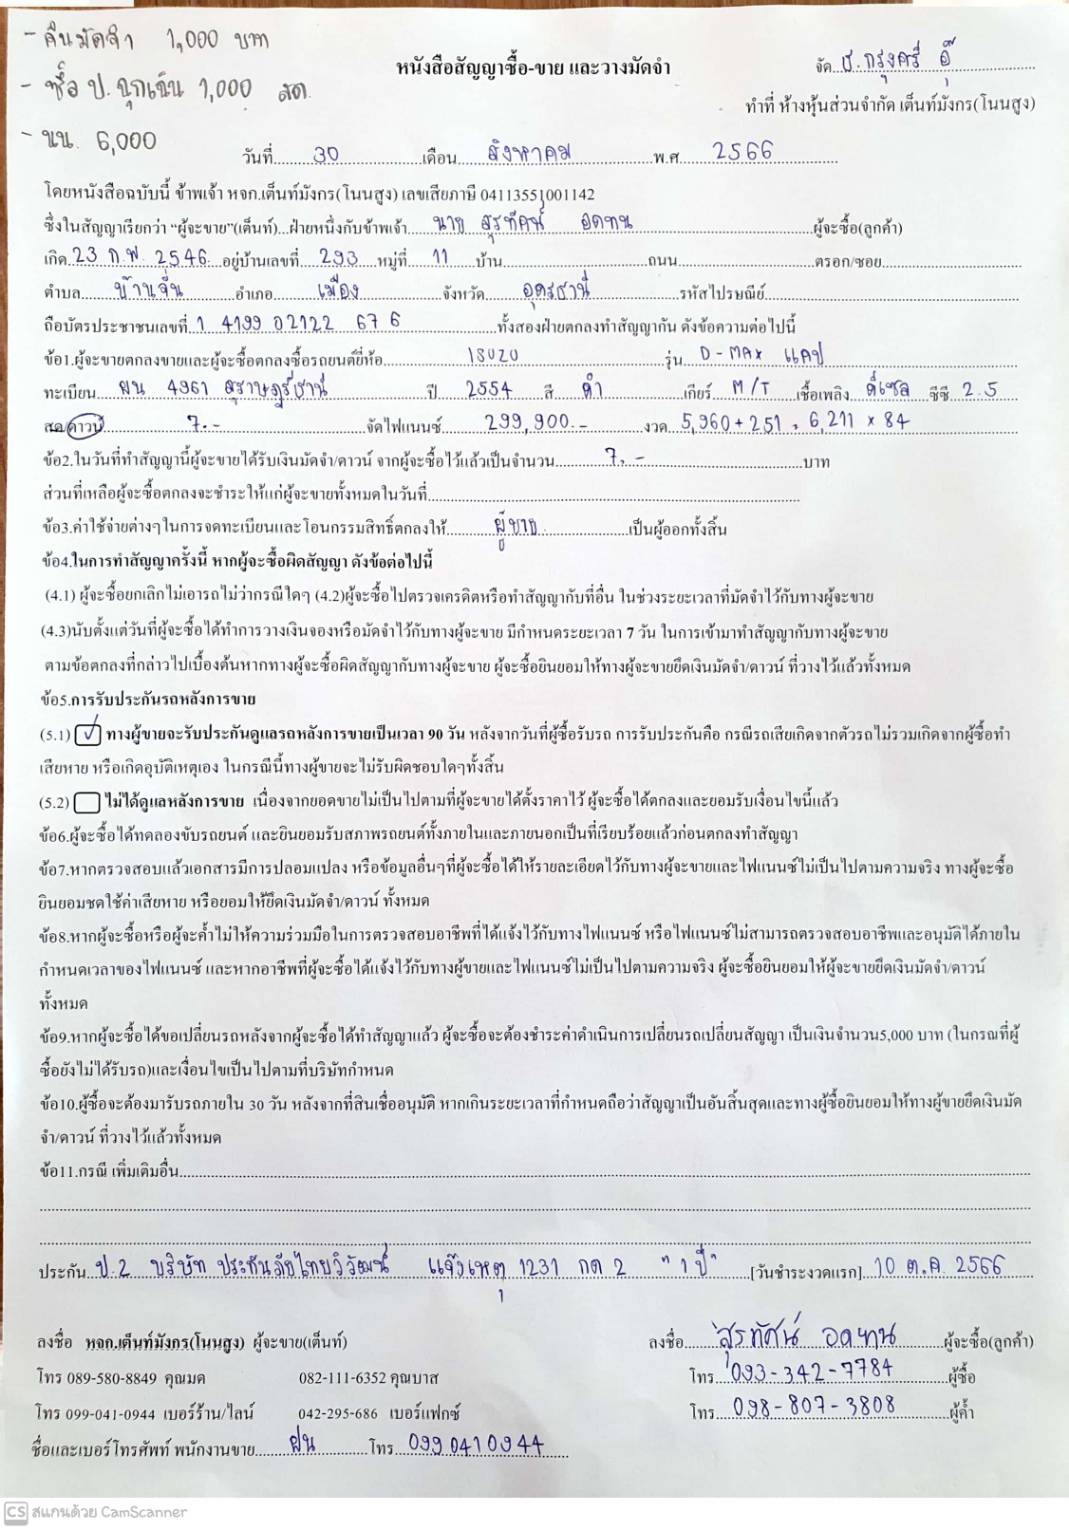 - คืนมัดจำ 1,000 บาท
- ซื้อ ป. ฉุกเฉิน 1,000 สด
- นน. 6,000
หนังสือสัญญาซื้อ-ขาย และวางมัดจำ
จัด ธ.กรุงศรี อุ๊
ทำที่ ห้างหุ้นส่วนจำกัด เต็นท์มังกร(โนนสูง)
วันที่ 30 เดือน สิงหาคม พ.ศ 2566
โดยหนังสือฉบับนี้ ข้าพเจ้า หจก.เต็นท์มังกร(โนนสูง) เลขเสียภาษี 0411355১001142
ซึ่งในสัญญาเรียกว่า “ผู้จะขาย”(เต็นท์)...ฝ่ายหนึ่งกับข้าพเจ้า นาย สุรทัศน์ อดทน ผู้จะซื้อ(ลูกค้า)
เกิด 23 ก.พ. 2546 อยู่บ้านเลขที่ 293 หมู่ที่ 11 บ้าน ถนน ตรอก/ซอย
ตำบล บ้านจั่น อำเภอ เมือง จังหวัด อุดรธานี รหัสไปรษณีย์
ถือบัตรประชาชนเลขที่ 1 4199 02122 67 6 ทั้งสองฝ่ายตกลงทำสัญญากัน ดังข้อความต่อไปนี้
ข้อ1.ผู้จะขายตกลงขายและผู้จะซื้อตกลงซื้อรถยนต์ยี่ห้อ ISUZU รุ่น D-MAX แคป
ทะเบียน ผน 4961 สุราษฎร์ธานี ปี 2554 สี ดำ เกียร์ M/T เชื้อเพลิง ดีเซล ซีซี 2.5
สด/ดาวน์ 7.- จัดไฟแนนซ์ 299,900.- งวด 5,960+251 = 6,211 x 84
ข้อ2.ในวันที่ทำสัญญานี้ผู้จะขายได้รับเงินมัดจำ/ดาวน์ จากผู้จะซื้อไว้แล้วเป็นจำนวน 7.- บาท
ส่วนที่เหลือผู้จะซื้อตกลงจะชำระให้แก่ผู้จะขายทั้งหมดในวันที่
ข้อ3.ค่าใช้จ่ายต่างๆในการจดทะเบียนและโอนกรรมสิทธิ์ตกลงให้ ผู้ขาย เป็นผู้ออกทั้งสิ้น
ข้อ4.ในการทำสัญญาครั้งนี้ หากผู้จะซื้อผิดสัญญา ดังข้อต่อไปนี้
(4.1) ผู้จะซื้อยกเลิกไม่เอารถไม่ว่ากรณีใดๆ (4.2)ผู้จะซื้อไปตรวจเครดิตหรือทำสัญญากับที่อื่น ในช่วงระยะเวลาที่มัดจำไว้กับทางผู้จะขาย
(4.3)นับตั้งแต่วันที่ผู้จะซื้อได้ทำการวางเงินจองหรือมัดจำไว้กับทางผู้จะขาย มีกำหนดระยะเวลา 7 วัน ในการเข้ามาทำสัญญากับทางผู้จะขาย
ตามข้อตกลงที่กล่าวไปเบื้องต้นหากทางผู้จะซื้อผิดสัญญากับทางผู้จะขาย ผู้จะซื้อยินยอมให้ทางผู้จะขายยึดเงินมัดจำ/ดาวน์ ที่วางไว้แล้วทั้งหมด
ข้อ5.การรับประกันรถหลังการขาย
(5.1) ✓ ทางผู้ขายจะรับประกันดูแลรถหลังการขายเป็นเวลา 90 วัน หลังจากวันที่ผู้ซื้อรับรถ การรับประกันคือ กรณีรถเสียเกิดจากตัวรถไม่รวมเกิดจากผู้ซื้อทำ
เสียหาย หรือเกิดอุบัติเหตุเอง ในกรณีนี้ทางผู้ขายจะไม่รับผิดชอบใดๆทั้งสิ้น
(5.2) ไม่ได้ดูแลหลังการขาย เนื่องจากยอดขายไม่เป็นไปตามที่ผู้จะขายได้ตั้งราคาไว้ ผู้จะซื้อได้ตกลงและยอมรับเงื่อนไขนี้แล้ว
ข้อ6.ผู้จะซื้อได้ทดลองขับรถยนต์ และยินยอมรับสภาพรถยนต์ทั้งภายในและภายนอกเป็นที่เรียบร้อยแล้วก่อนตกลงทำสัญญา
ข้อ7.หากตรวจสอบแล้วเอกสารมีการปลอมแปลง หรือข้อมูลอื่นๆที่ผู้จะซื้อได้ให้รายละเอียดไว้กับทางผู้จะขายและไฟแนนซ์ไม่เป็นไปตามความจริง ทางผู้จะซื้อ
ยินยอมชดใช้ค่าเสียหาย หรือยอมให้ยึดเงินมัดจำ/ดาวน์ ทั้งหมด
ข้อ8.หากผู้จะซื้อหรือผู้จะค้ำไม่ให้ความร่วมมือในการตรวจสอบอาชีพที่ได้แจ้งไว้กับทางไฟแนนซ์ หรือไฟแนนซ์ไม่สามารถตรวจสอบอาชีพและอนุมัติได้ภายใน
กำหนดเวลาของไฟแนนซ์ และหากอาชีพที่ผู้จะซื้อได้แจ้งไว้กับทางผู้ขายและไฟแนนซ์ไม่เป็นไปตามความจริง ผู้จะซื้อยินยอมให้ผู้จะขายยึดเงินมัดจำ/ดาวน์
ทั้งหมด
ข้อ9.หากผู้จะซื้อได้ขอเปลี่ยนรถหลังจากผู้จะซื้อได้ทำสัญญาแล้ว ผู้จะซื้อจะต้องชำระค่าดำเนินการเปลี่ยนรถเปลี่ยนสัญญา เป็นเงินจำนวน5,000 บาท (ในกรณที่ผู้
ซื้อยังไม่ได้รับรถ)และเงื่อนไขเป็นไปตามที่บริษัทกำหนด
ข้อ10.ผู้ซื้อจะต้องมารับรถภายใน 30 วัน หลังจากที่สินเชื่ออนุมัติ หากเกินระยะเวลาที่กำหนดถือว่าสัญญาเป็นอันสิ้นสุดและทางผู้ซื้อยินยอมให้ทางผู้ขายยึดเงินมัด
จำ/ดาวน์ ที่วางไว้แล้วทั้งหมด
ข้อ11.กรณี เพิ่มเติมอื่น
ประกัน ป.2 บริษัท ประกันภัยไทยวิวัฒน์ แจ้งเหตุ 1231 กด 2 "1 ปี" [วันชำระงวดแรก] 10 ต.ค. 2566
ลงชื่อ หจก.เต็นท์มังกร(โนนสูง) ผู้จะขาย(เต็นท์) ลงชื่อ สุรทัศน์ อดทน ผู้จะซื้อ(ลูกค้า)
โทร 089-580-8849 คุณมด 082-111-6352 คุณบาส โทร 093-342-7784 ผู้ซื้อ
โทร 099-041-0944 เบอร์ร้าน/ไลน์ 042-295-686 เบอร์แฟกซ์ โทร 098-807-3808 ผู้ค้ำ
ชื่อและเบอร์โทรศัพท์ พนักงานขาย ฝน โทร 0990410944
CS สแกนด้วย CamScanner